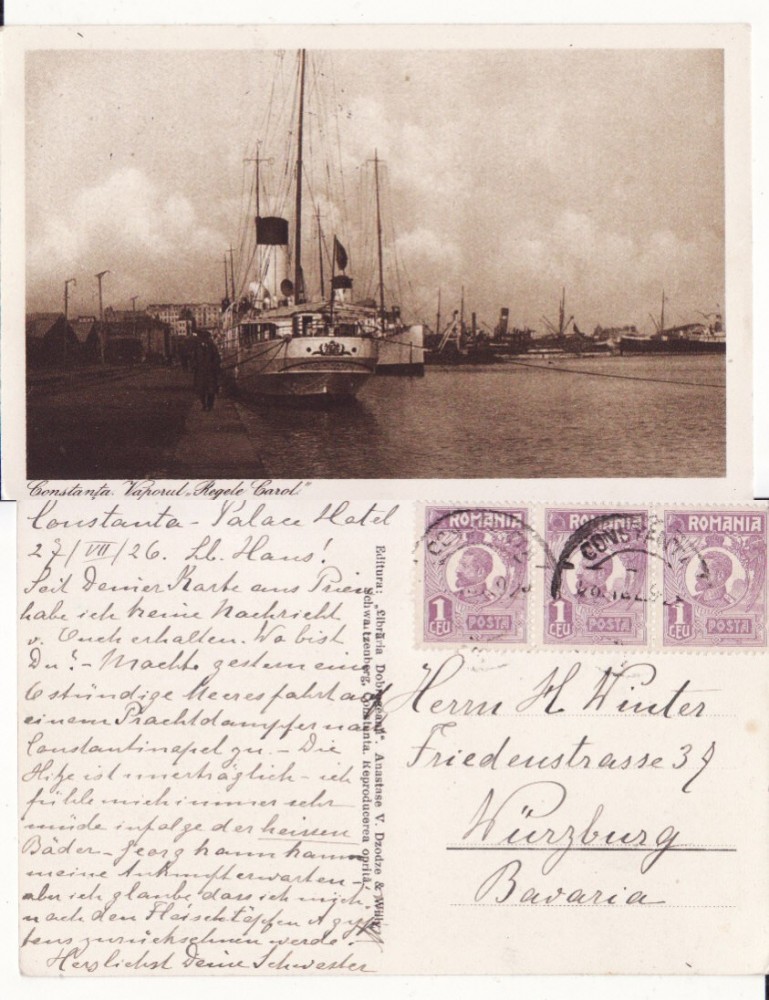 Constanța. Vaporul „Regele Carol"
Constanta - Palace Hotel
27/VII/26. Lb. Hans!
Seit Deiner Karte aus Prien
habe ich keine Nachricht
v. Euch erhalten. Wo bist
Du? - Machte gestern eine
6 stündige Meeresfahrt auf
einem Prachtdampfer nach
Constantinopel zu. - Die
Hitze ist unerträglich - ich
fühle mich immer sehr
müde infolge der heissen
Bäder - Georg kann kaum
meine Ankunft erwarten -
aber ich glaube dass ich mich
nach den Fleischtöpfen Ägyp
tens zurücksehnen werde.
Herzlichst Deine Schwester
Editura: „Librăria Dobrogeană" Anastase V. Dzodze & Willy
Schwartzenberg, Constanta. Reproducerea oprită.
ROMANIA
1 LEU
POSTA
ROMANIA
1 LEU
POSTA
ROMANIA
1 LEU
POSTA
CONSTANTA
Herrn H Winter
Friedenstrasse 37
Würzburg
Bavaria